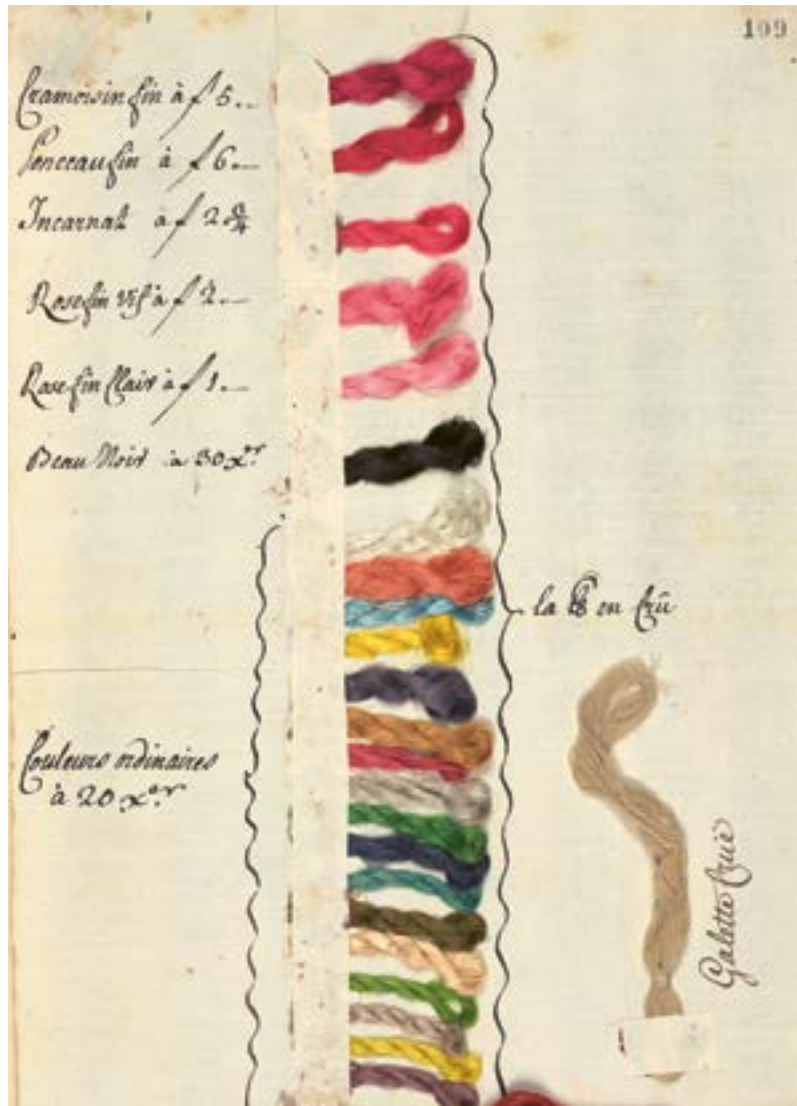 109
Cramoisin fin à f 5..
Ponceau fin à f 6..
Incarnat a f 2 3/4
Rose fin vif à f 2..
Rose fin Clair à f 1..
Beau Noir à 30 xer.
la ℔ en Crû
Couleurs ordinaires
à 20 xer.
Galette Cruë